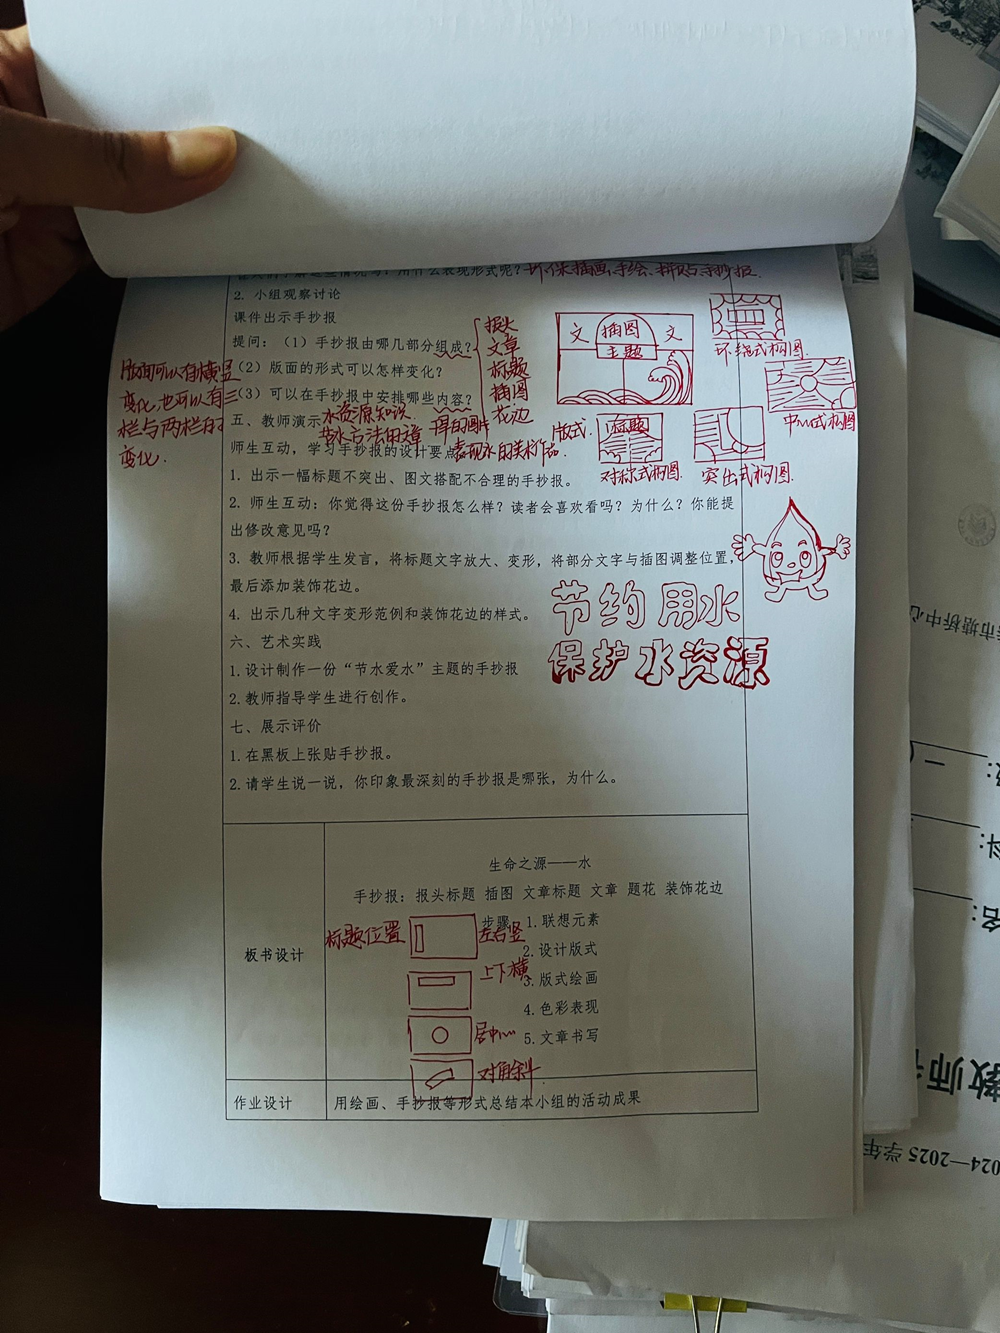 用什么表现形式呢？环保插画、手绘、拼贴、手抄报
2. 小组观察讨论
课件出示手抄报
提问：（1）手抄报由哪几部分组成？
（2）版面的形式可以怎样变化？
（3）可以在手抄报中安排哪些内容？
报头
文章
标题
插图
花边
版面可以有横竖
变化,也可以有三
栏与两栏的
变化.
文 插图 文
主题
环绕式构图
中心式构图
版式.
标题
对称式构图
突出式构图.
五、教师演示
水资源知识.
节水方法的文章
表现水的美术作品.
师生互动，学习手抄报的设计要点
1. 出示一幅标题不突出、图文搭配不合理的手抄报。
2. 师生互动：你觉得这份手抄报怎么样？读者会喜欢看吗？为什么？你能提
出修改意见吗？
3. 教师根据学生发言，将标题文字放大、变形，将部分文字与插图调整位置，
最后添加装饰花边。
4. 出示几种文字变形范例和装饰花边的样式。
节约用水
保护水资源
六、艺术实践
1.设计制作一份“节水爱水”主题的手抄报
2.教师指导学生进行创作。
七、展示评价
1.在黑板上张贴手抄报。
2.请学生说一说，你印象最深刻的手抄报是哪张，为什么。
板书设计
生命之源——水
手抄报：报头标题 插图 文章标题 文章 题花 装饰花边
步骤 1.联想元素
2.设计版式
3.版式绘画
4.色彩表现
5.文章书写
标题位置
左右竖
上下横
居中
对角斜
作业设计
用绘画、手抄报等形式总结本小组的活动成果
市塘桥中心
教师
2024—2025 学年